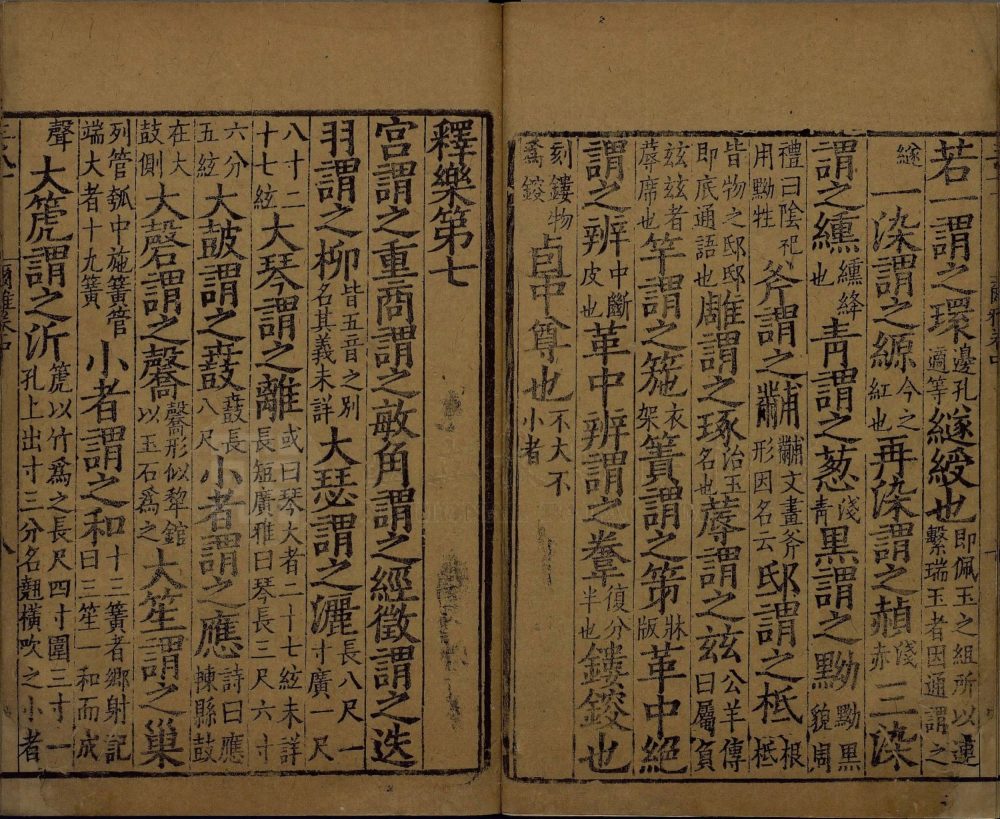 若一謂之環邊孔適等繸綬也即佩玉之組所以連繫瑞玉者因通謂之
繸一染謂之縓今之紅也再染謂之赬淺赤三染
謂之纁纁絳也青謂之葱淺青黑謂之黝黝黑貌周
禮曰陰祀用黝牲斧謂之黼黼文畫斧形因名云邸謂之柢根柢
皆物之邸邸即底通語也雕謂之琢治玉名也蓐謂之玆公羊傳曰屬負
玆玆者蓐席也竿謂之箷衣架簀謂之第牀版革中絕
謂之辨中斷皮也革中辨謂之韏復分半也鏤鋑也
刻鏤物爲鋑卣中尊也不大不小者
釋樂第七
宮謂之重商謂之敏角謂之經徵謂之迭
羽謂之柳皆五音之別名其義未詳大瑟謂之灑長八尺一寸廣一尺
八寸二十七絃大琴謂之離或曰琴大者二十七絃未詳長短廣雅曰琴長三尺六寸
六分五絃大鼓謂之鼖鼖長八尺小者謂之應詩曰應朄縣鼓
在大鼓側大磬謂之毊毊形似犂錧以玉石爲之大笙謂之巢
列管瓠中施簧管端大者十九簧小者謂之和十三簧者鄉射記曰三笙一和而成
聲大箎謂之沂箎以竹爲之長尺四寸圍三寸一孔上出寸三分名翹橫吹之小者
八